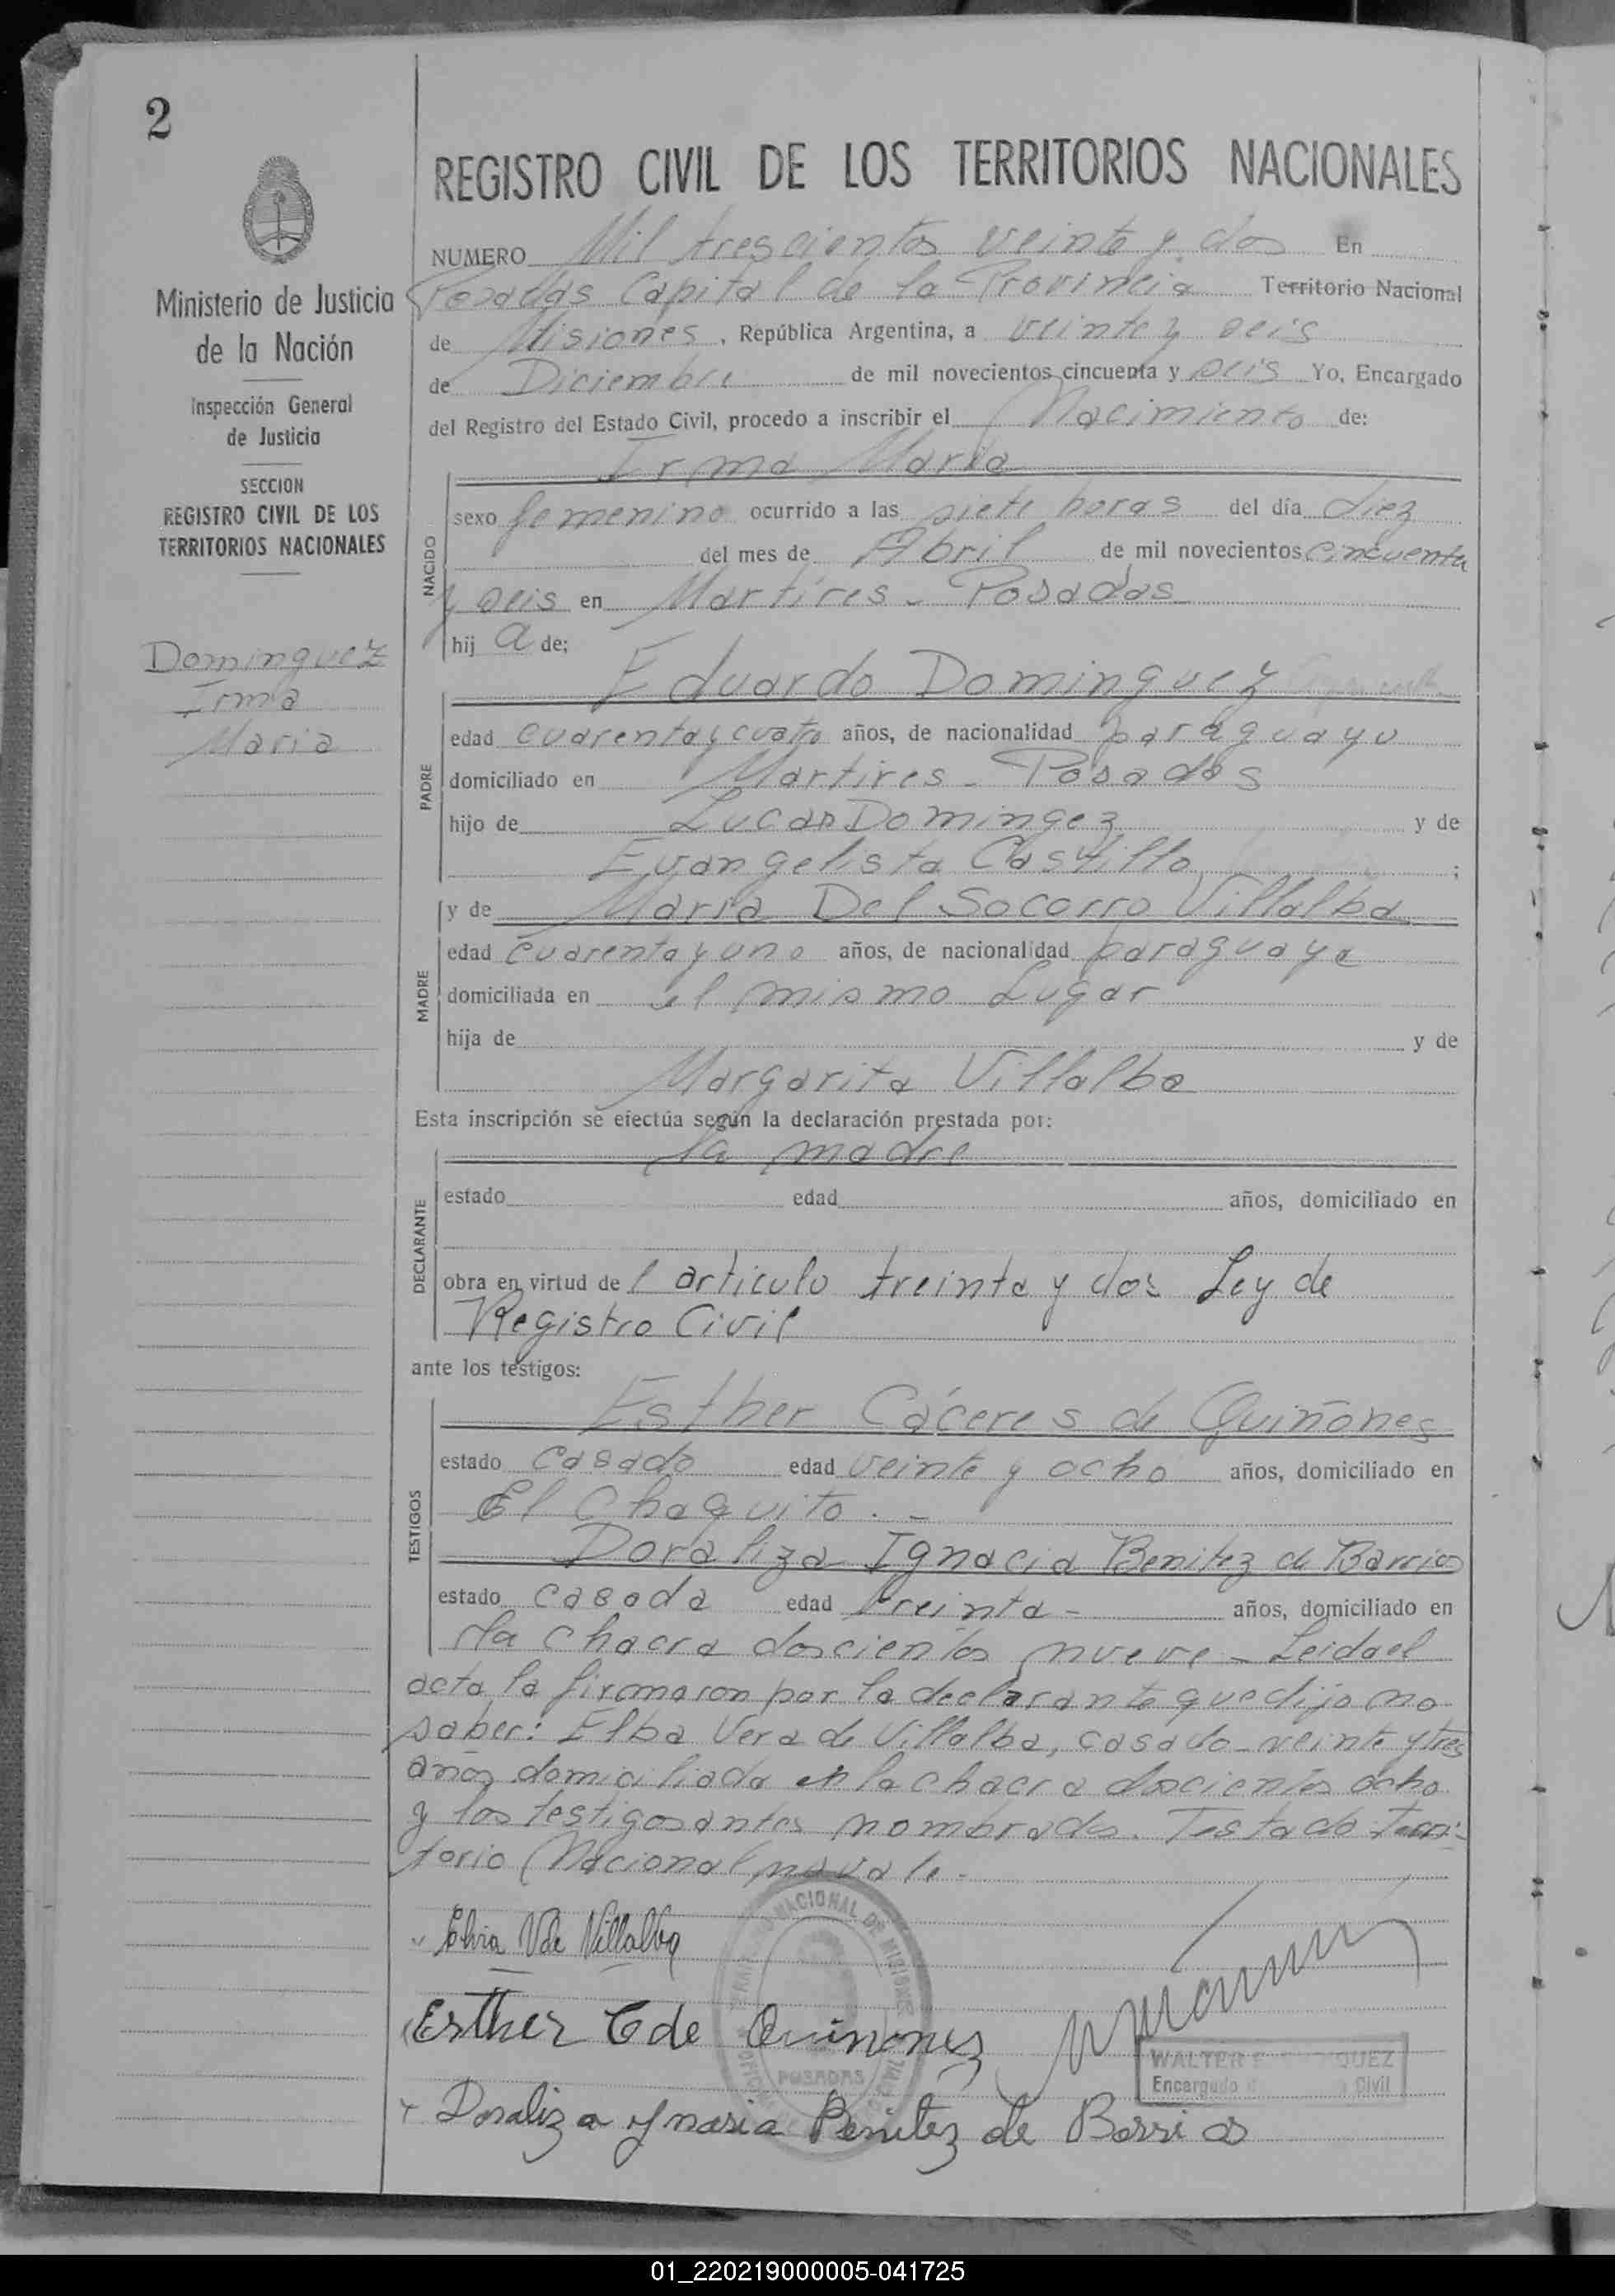 2
REGISTRO CIVIL DE LOS TERRITORIOS NACIONALES
Ministerio de Justicia
de la Nación
Inspección General
de Justicia
SECCION
REGISTRO CIVIL DE LOS
TERRITORIOS NACIONALES
Dominguez
Irma
Maria
NUMERO Mil trescientos veinte y dos En
Posadas Capital de la Provincia Territorio Nacional
de Misiones, República Argentina, a veinte y seis
de Diciembre de mil novecientos cincuenta y seis Yo, Encargado
del Registro del Estado Civil, procedo a inscribir el Nacimiento de:
Irma Maria
NACIDO
sexo femenino ocurrido a las siete horas del día diez
del mes de Abril de mil novecientos cincuenta
y seis en Martires - Posadas
hij a de;
Eduardo Dominguez
PADRE
edad cuarenta y cuatro años, de nacionalidad paraguayo
domiciliado en Martires - Posadas
hijo de Lucas Domingez y de
Evangelista Castillo ;
y de Maria Del Socorro Villalba
MADRE
edad cuarenta y uno años, de nacionalidad paraguaya
domiciliada en el mismo Lugar
hija de y de
Margarita Villalba
Esta inscripción se efectúa según la declaración prestada por:
la madre
DECLARANTE
estado edad años, domiciliado en
obra en virtud de l articulo treinta y dos Ley de
Registro Civil
ante los testigos:
TESTIGOS
Esther Cáceres de Quiñones
estado casado edad veinte y ocho años, domiciliado en
El Chaquito. -
Doraliza Ignacia Benitez de Barrios
estado casada edad treinta - años, domiciliado en
la chacra doscientos nueve - Leida el
acta la firmaron por la declarante que dijo no
saber: Elba Vera de Villalba, casada - veinte y tres
años domiciliada en la chacra doscientos ocho
y los testigos antes nombrados. Testado Terri-
torio Nacional no vale -
Elvia V de Villalba
Esther C de Quiñonez
Doraliza Ynasia Benitez de Barrios
NACIONAL DE MISIONES
POSADAS
WALTER
Encargado Civil
01_220219000005-041725